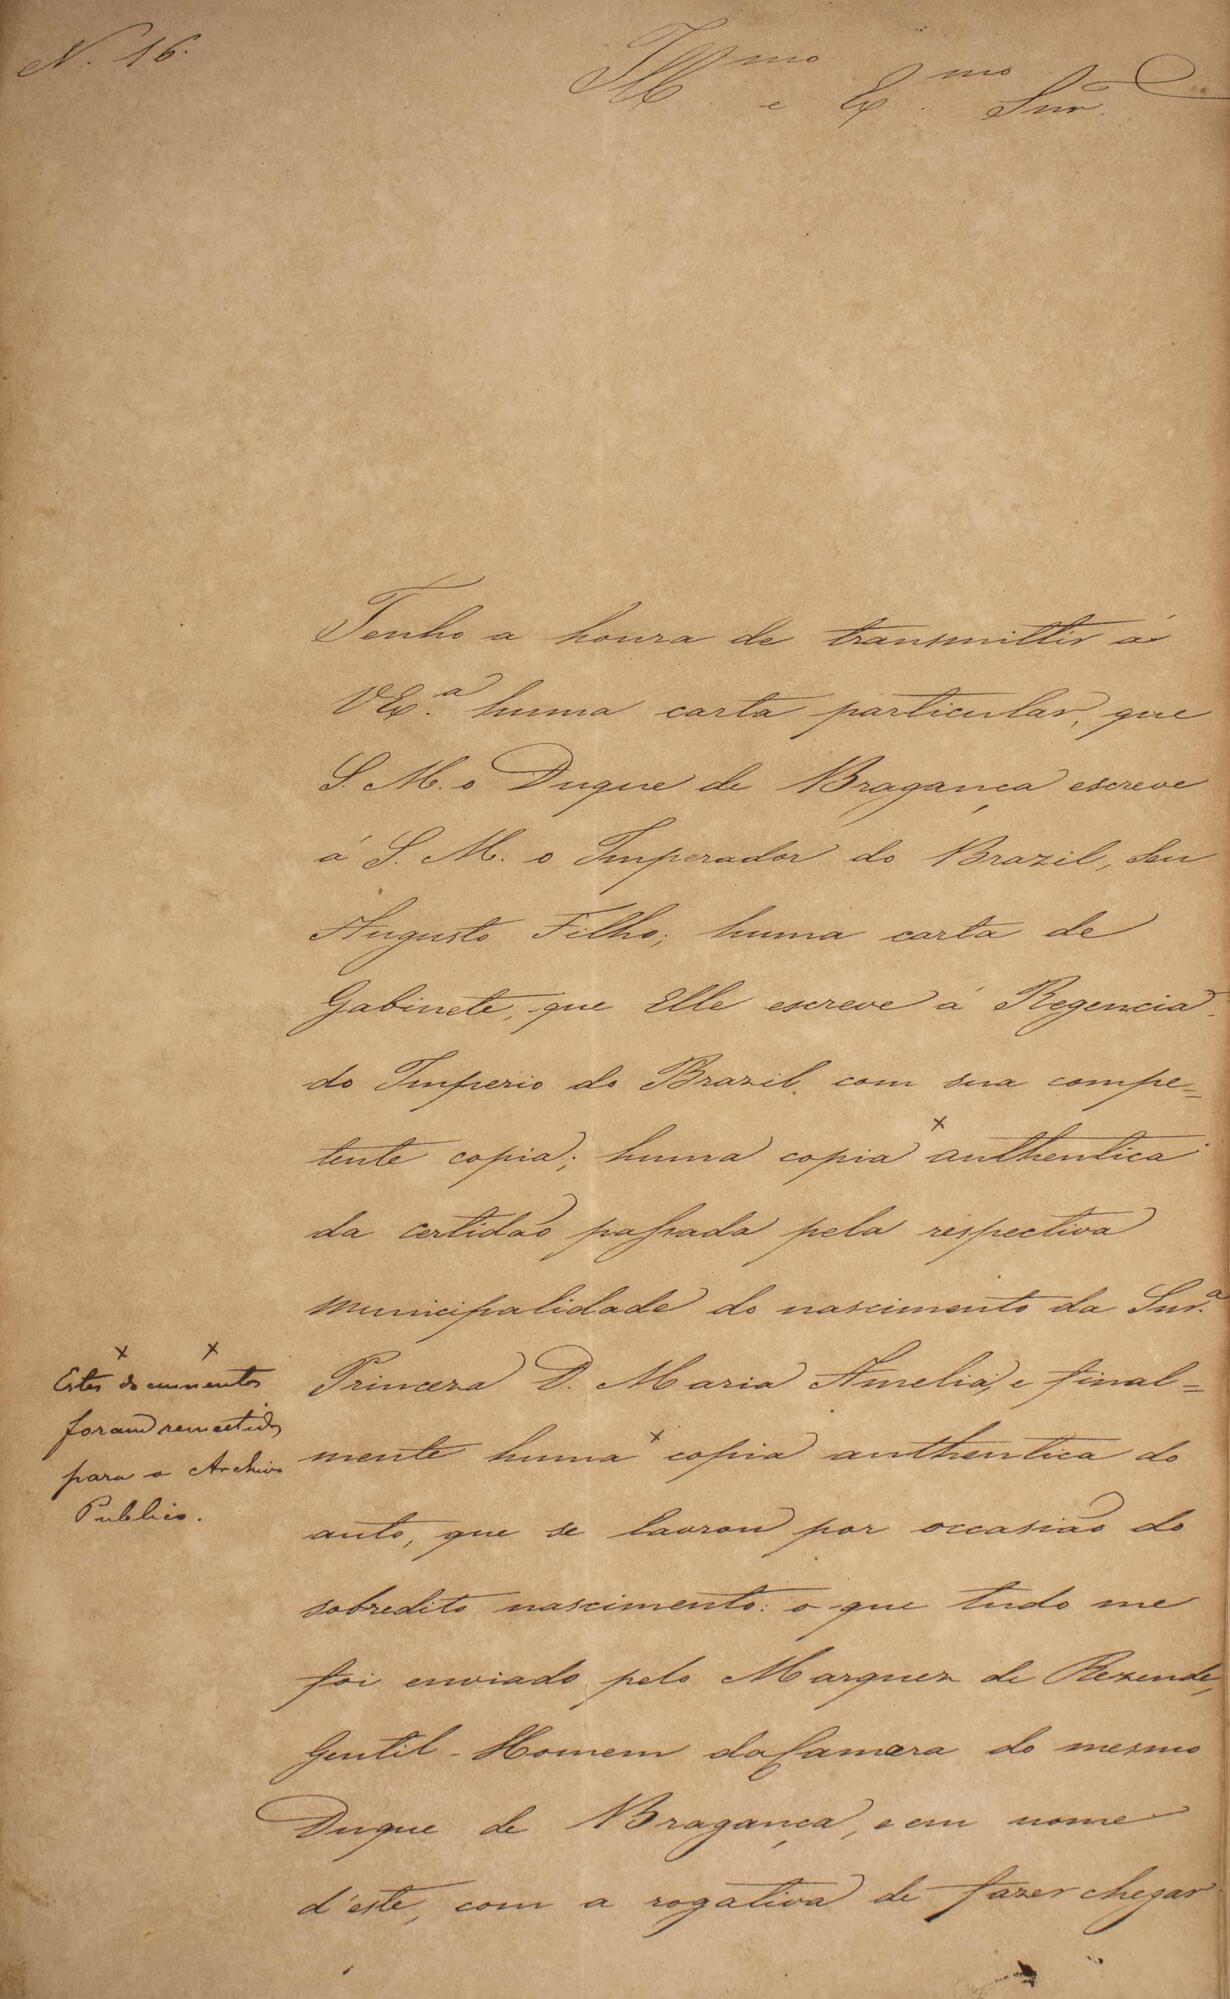 N. 16.
Ill.mo e Ex.mo Snr.
Tenho a honra de transmittir á
V Ex.ª huma carta particular, que
S. M. o Duque de Bragança escreve
á S. M. o Imperador do Brazil, Seu
Augusto Filho; huma carta de
Gabinete, que Elle escreve á Regencia
do Imperio do Brazil com sua compe=
tente copia; huma copia × authentica
da certidão passada pela respectiva
municipalidade do nascimento da Snr.ª
Princeza D. Maria Amelia; e final=
mente huma × copia authentica do
auto, que se lavrou por occasião do
sobredito nascimento: o que tudo me
foi enviado pelo Marquez de Rezende,
Gentil-Homem da Camera do mesmo
Duque de Bragança, e em nome
d'este, com a rogativa de fazer chegar
× ×
Estes documentos
foram remettidos
para o Archivo
Publico.